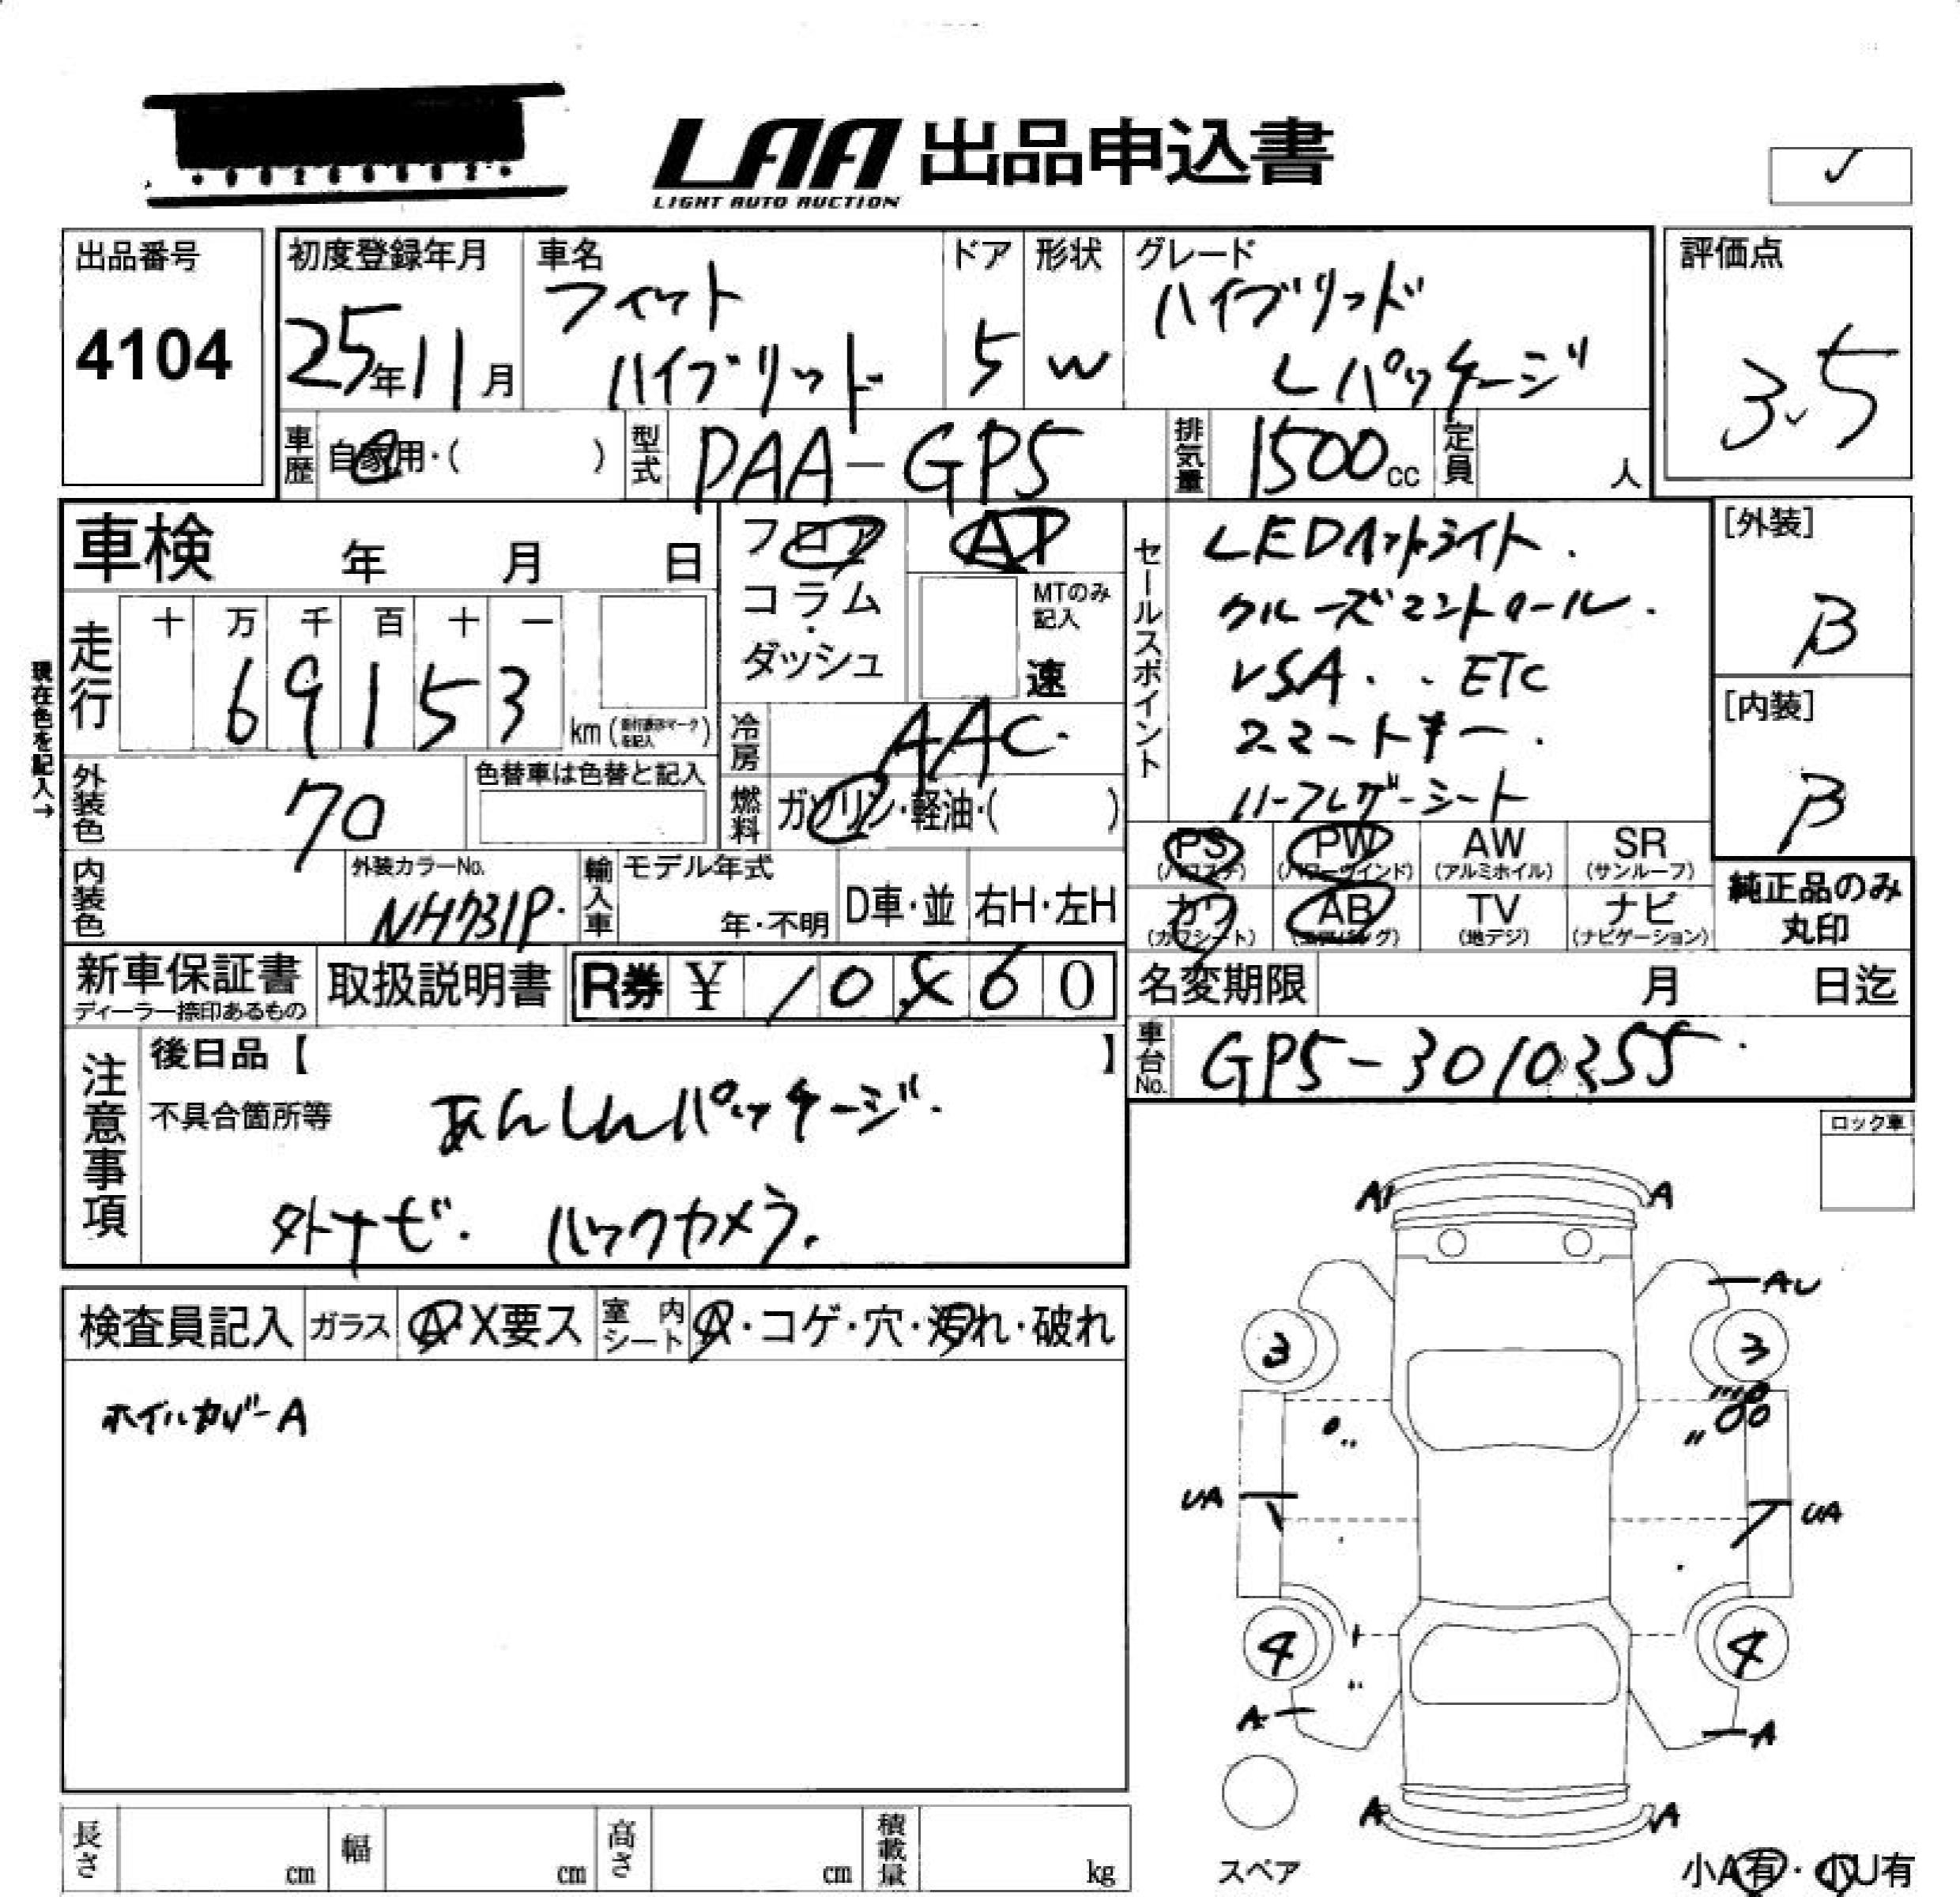 LAA 出品申込書
LIGHT AUTO AUCTION
出品番号
4104
初度登録年月
25年11月
車名
フィット
ハイブリッド
ドア
5
形状
W
グレード
ハイブリッド
Lパッケージ
評価点
3.5
車歴
自家用・( )
型式
DAA-GP5
排気量
1500cc
定員
人
車検 年 月 日
フロア
コラム
・
ダッシュ
AT
MTのみ
記入
速
セールスポイント
LEDヘッドライト.
クルーズコントロール.
VSA. . ETC
スマートキー.
ハーフレザーシート
[外装]
B
[内装]
B
現在色を記入→
走行
十 万 千 百 十 一
6 9 1 5 3
km ( )
冷房
AAC.
外装色
70
色替車は色替と記入
燃料
ガソリン・軽油・( )
PS
PW
(パワーウインド)
AW
(アルミホイル)
SR
(サンルーフ)
カワ
(カワシート)
AB
(エアバッグ)
TV
(地デジ)
ナビ
(ナビゲーション)
純正品のみ
丸印
内装色
外装カラーNo.
NH731P.
輸入車
モデル年式
年・不明
D車・並
右H・左H
新車保証書
ディーラー捺印あるもの
取扱説明書
R券 ¥ 10,860
名変期限 月 日迄
車台No.
GP5-3010355.
注意事項
後日品【 】
不具合箇所等
あんしんパッケージ.
外ナビ. バックカメラ.
ロック車
検査員記入
ガラス
A・X要ス
室内シート
A・コゲ・穴・汚れ・破れ
ホイルカバーA
A A
AU
3 3
UA UA
4 4
A A
A A
スペア
小A有・小U有
長さ cm
幅 cm
高さ cm
積載量 kg